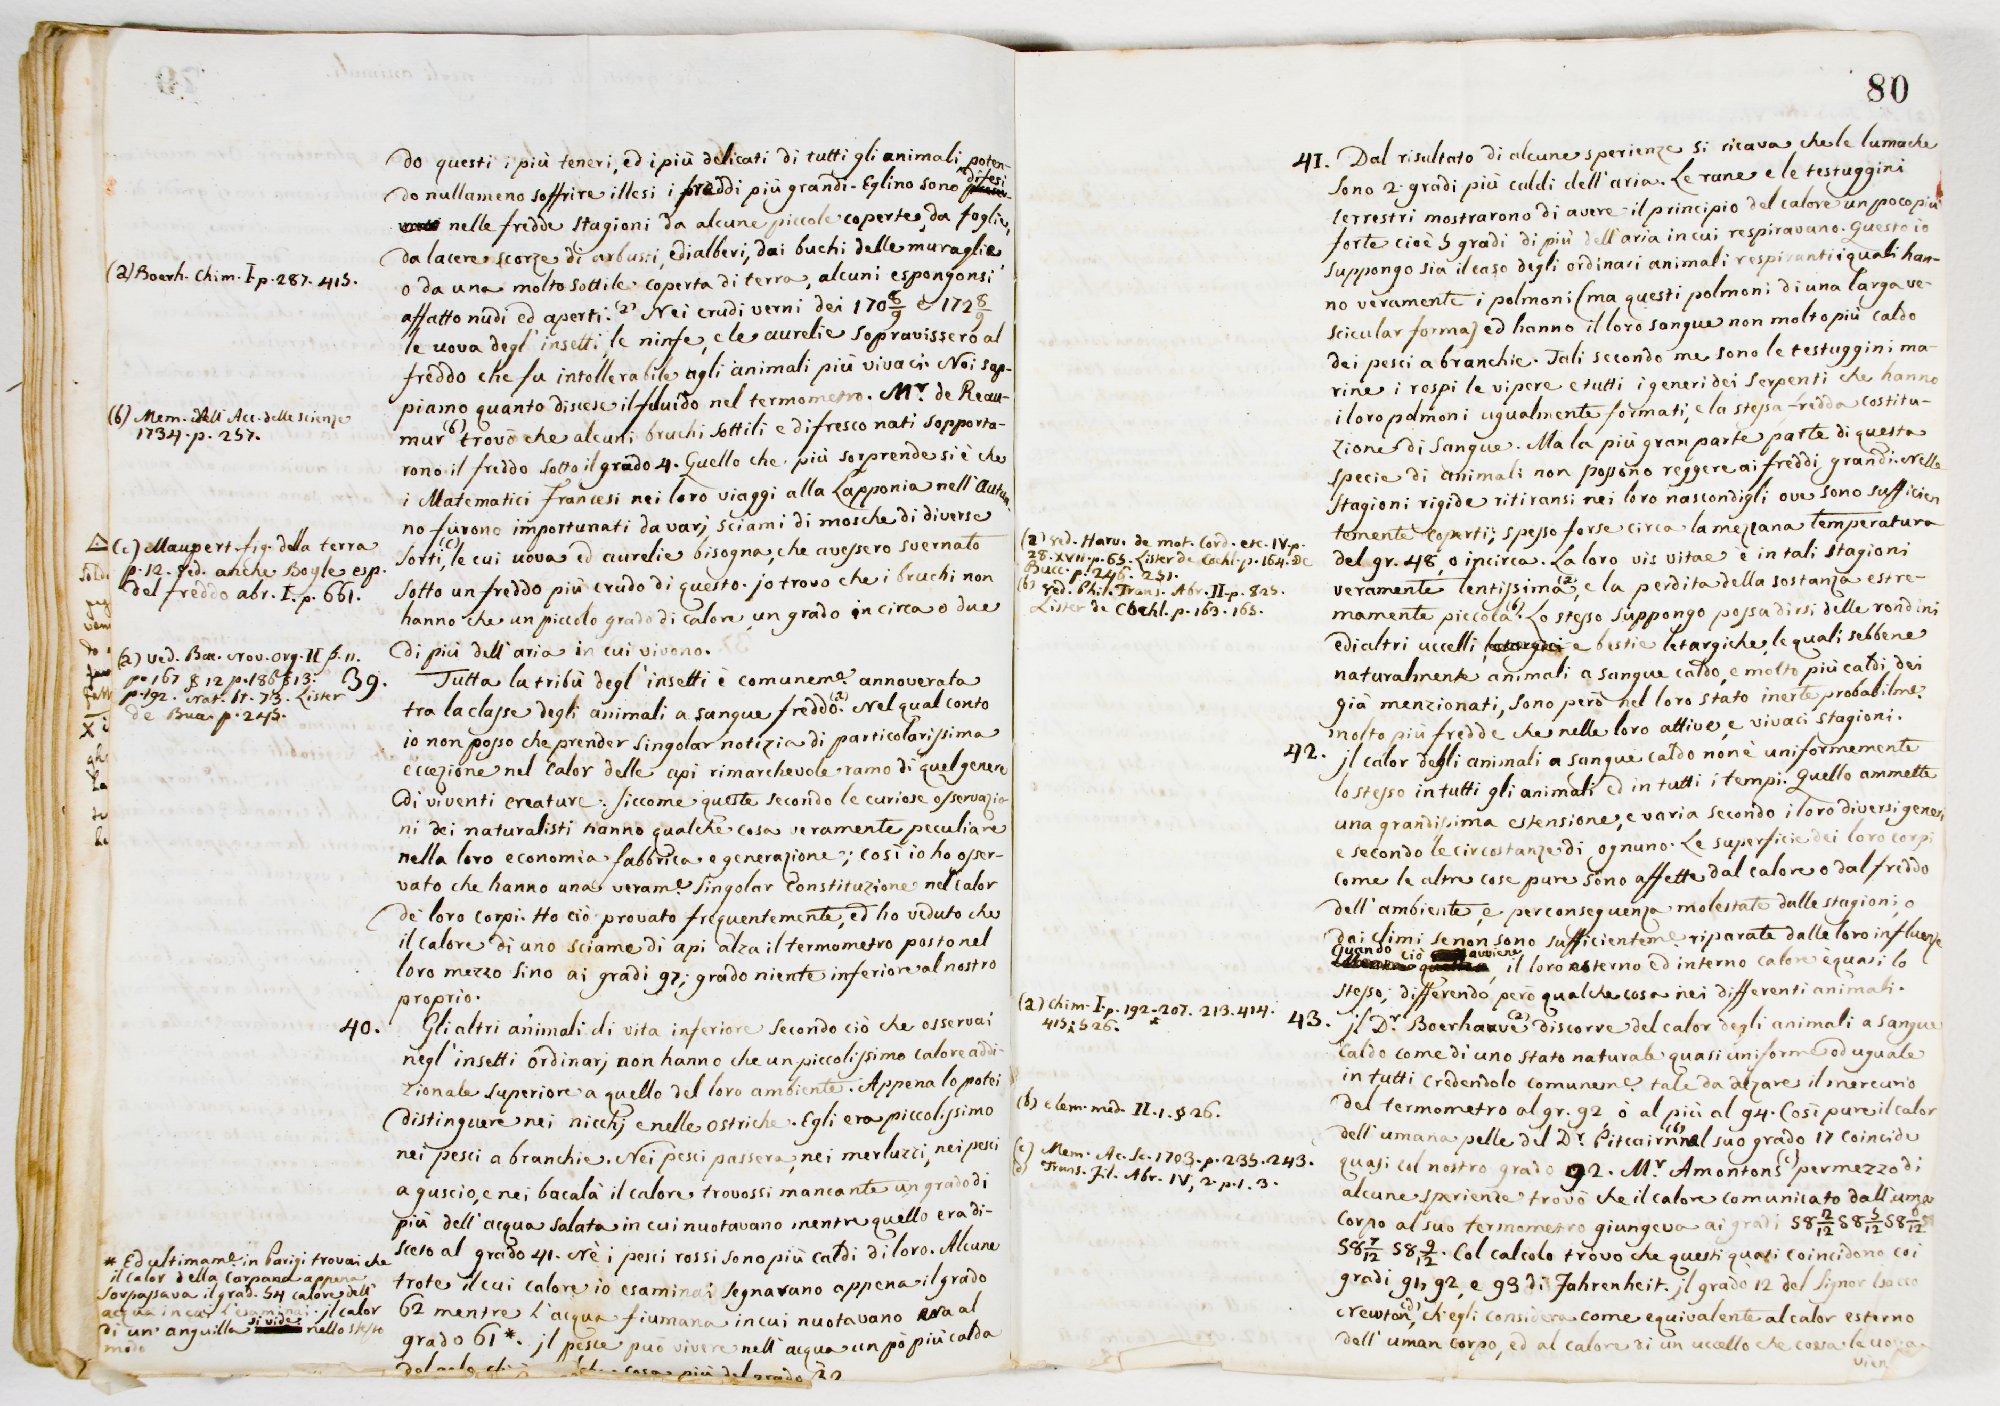 do questi i più teneri, ed i più delicati di tutti gli animali poten-
do nullameno soffrire illesi i freddi più grandi. Eglino sono difesi
nelle fredde stagioni da alcune piccole coperte, da foglie,
da lacere scorze di arbusti, ed alberi, dai buchi delle muraglie
o da una molto sottile coperta di terra, alcuni espongonsi
affatto nudi ed aperti. (a) Nei crudi verni dei 170 8/9 e 172 8/9
le uova degl' insetti, le ninfe, e le aurelie sopravissero al
freddo che fu intollerabile agli animali più vivaci. Noi sap-
piamo quanto discese il fluido nel termometro. Mr. de Reau-
mur (b) trovò che alcuni bruchi sottili e di fresco nati sopporta-
rono il freddo sotto il grado 4. Quello che più sorprende si è che
i Matematici francesi nei loro viaggi alla Lapponia nell' Autun-
no furono importunati da varj sciami di mosche di diverse
sorti (c), le cui uova ed aurelie bisogna, che avessero svernato
sotto un freddo più crudo di questo. jo trovo che i bruchi non
hanno che un piccolo grado di calore, un grado incirca o due
di più dell' aria in cui vivono.
39. Tutta la tribù degl' insetti è comuneme. annoverata
tra la classe degli animali a sangue freddo. (a) Nel qual conto
io non posso che prender singolar notizia di particolarissima
eccezione nel calor delle api rimarchevole ramo di quel genere
di viventi creature. Siccome queste secondo le curiose osservazio-
ni dei naturalisti hanno qualche cosa veramente peculiare
nella loro economia fabbrica e generazione; così io ho osser-
vato che hanno una verame. singolar Constituzione nel calor
de' loro corpi. Ho ciò provato frequentemente, ed ho veduto che
il calore di uno sciame di api alza il termometro posto nel
loro mezzo sino ai gradi 97; grado niente inferiore al nostro
proprio.
40. Gli altri animali di vita inferiore secondo ciò che osservai
negl' insetti ordinarj non hanno che un piccolissimo calore addi-
zionale superiore a quello del loro ambiente. Appena lo potei
distinguere nei nicchj e nelle ostriche. Egli era piccolissimo
nei pesci a branchie. Nei pesci passera, nei merluzzi, nei pesci
a guscio, e nei bacalà il calore trovossi mancante un grado di
più dell' acqua salata in cui nuotavano mentre quello era di-
sceso al grado 41. Nè i pesci rossi sono più caldi di loro. Alcune
trote il cui calore io esaminai segnavano appena il grado
62 mentre l' acqua fiumana in cui nuotavano era al
grado 61 *. jl pesce può vivere nell' acqua un pò più calda
che cosa più del grado
(a) Boerh. Chim. I. p. 287. 415.
(b) Mem. dell' Acc. delle scienze
1734. p. 257.
(c) Maupert. fig. della terra
p. 12. Ved. anche Boyle esp.
del freddo abr. I. p. 661.
(a) ved. Bac. Nov. Org. II §. 11.
p. 167 § 12 p. 186 § 13.
p. 192. Nat. st. 73. Lister
de Bucc. p. 245.
* Ed ultimame. in Parigi trovai che
il calor della Carpana appena
sorpassava il grad. 54 calore dell'
acqua in cui l' esaminai. jl calor
di un' anguilla si vide nello stesso
modo
80
41. Dal risultato di alcune sperienze si ricava che le lumache
sono 2. gradi più caldi dell' aria. Le rane e le testuggini
terrestri mostrarono di avere il principio del calore un poco più
forte cioè 5 gradi di più dell' aria in cui respiravano. Questo io
suppongo sia il caso degli ordinari animali respiranti i quali han-
no veramente i polmoni (ma questi polmoni di una larga ve-
scicular forma) ed hanno il loro sangue non molto più caldo
dei pesci a branchie. Tali secondo me sono le testuggini ma-
rine i rospi le vipere e tutti i generi dei serpenti che hanno
i loro polmoni ugualmente formati, e la stessa fredda costitu-
zione di sangue. Ma la più gran parte parte di questa
specie di animali non possono reggere ai freddi grandi. Nelle
stagioni rigide ritiransi nei loro nascondigli ove sono sufficien
temente coperti; spesso forse circa la mezzana temperatura
del gr. 48, o incirca. La loro vis vitae è in tali stagioni
veramente lentissima (a), e la perdita della sostanza estre-
mamente piccola (b). Lo stesso suppongo possa dirsi delle rondini
ed altri uccelli e bestie letargiche, le quali sebbene
naturalmente animali a sangue caldo, e molto più caldi dei
già menzionati, sono però nel loro stato inerte probabilme.
molto più fredde che nelle loro attive, e vivaci stagioni.
42. jl calor degli animali a sangue caldo non è uniformemente
lo stesso in tutti gli animali ed in tutti i tempi. Quello ammette
una grandissima estensione, e varia secondo i loro diversi generi
e secondo le circostanze di ognuno. Le superficie dei loro corpi
come le altre cose pure sono affette dal calore o dal freddo
dell' ambiente, e per conseguenza molestate dalle stagioni, o
dai climi se non sono sufficienteme. riparate dalle loro influenze
Quando ciò avviene, il loro esterno ed interno calore è quasi lo
stesso; differendo però qualche cosa nei differenti animali.
43. jl Dr. Boerhaave (a) discorre del calor degli animali a sangue
caldo come di uno stato naturale quasi uniforme od uguale
in tutti credendolo comuneme. tale da alzare il mercurio
del termometro al gr. 92 ò al più al 94. Così pure il calor
dell' umana pelle del Dr. Pitcairn (b) al suo grado 17 coincide
quasi col nostro grado 92. Mr Amontons (c) per mezzo di
alcune sperienze trovò che il calore comunicato dall' uman
corpo al suo termometro giungeva ai gradi 58 2/12 58 5/12 58 6/12
58 7/12 58 9/12. Col calcolo trovo che questi quasi coincidono coi
gradi 91, 92, e 93 di Fahrenheit. jl grado 12 del Signor Isacco
Newton (d), ch' egli considera come equivalente al calor esterno
dell' uman corpo, ed al calore di un uccello che cova le uova
vien
(a) ved. Harv. de mot. Cord. etc. IV. p.
28. XVII. p. 65. Lister de Cochl. p. 164. de
Bucc. p. 246. 251.
(b) ved. Phil. Trans. Abr. II. p. 825.
Lister de Cochl. p. 163. 165.
(a) Chim. I. p. 192-207. 213. 414.
415. 526.
(b) elem. med. II. 1. § 26.
(c) Mem. Ac. Sc. 1703. p. 235. 243.
(d) Trans. Fil. Abr. IV, 2. p. 1. 3.